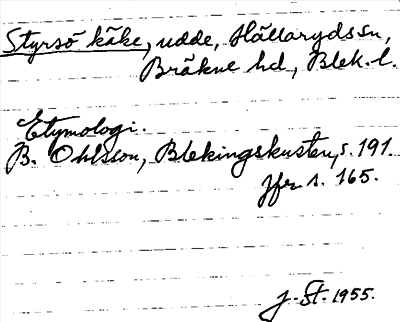 Styrsö käke, udde, Hällaryds sn,
Bräkne hd, Blek. l.
Etymologi.
B. Ohlsson, Blekingskusten, s. 191.
Jfr s. 165.
J. St. 1955.